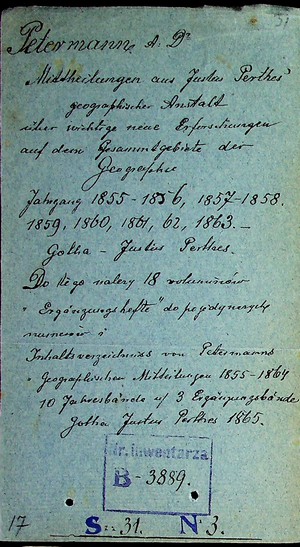 Petermann A. Dr
Mittheilungen aus Justus Perthes'
geographischer Anstalt
über wichtige neue Erforschungen
auf dem Gesammtgebiete der
Geographie
Jahrgang 1855-1856, 1857-1858.
1859, 1860, 1861, 62, 1863. —
Gotha — Justus Perthes.
Do tego należy 18 voluminów
"Ergänzungshefte" do pojedynczych
numerów i
Inhaltsverzeichniss von Petermanns
"Geographischen Mittheilungen 1855-1864
10 Jahresbände u/ 3 Ergänzungsbände
Gotha Justus Perthes 1865.
Nr. inwentarza
B-3889.
17 S. 31. N 3.